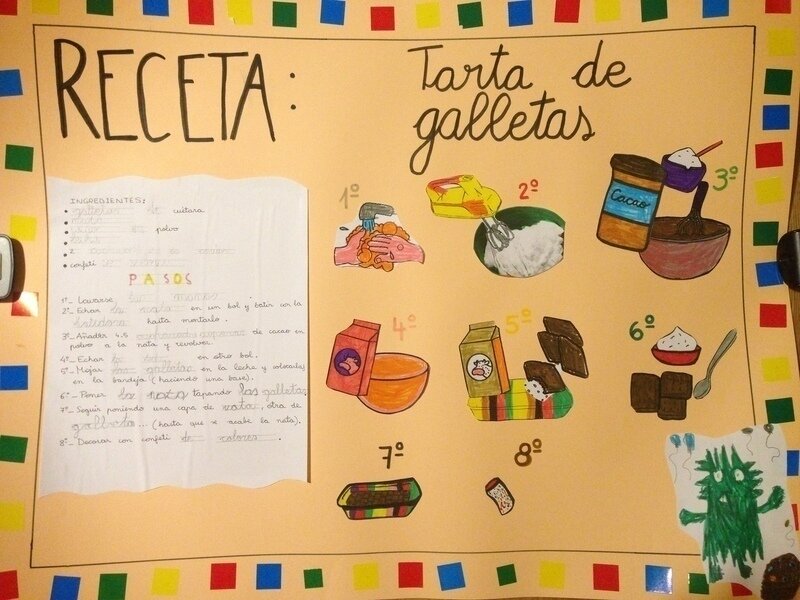 RECETA:
Tarta de
galletas
INGREDIENTES:
• galletas cuétara
• nata
• cacao en polvo
• leche
• 2
• confeti de colores
PASOS
1º- Lavarse las manos
2º- Echar la nata en un bol y batir con la
batidora hasta montarla.
3º- Añader 4.5 cucharadas soperas de cacao en
polvo a la nata y revolver.
4º- Echar la leche en otro bol.
5º- Mojar las galletas en la leche y colocarlas
en la bandeja (haciendo una base).
6º- Poner la nata tapando las galletas
7º- Seguir poniendo una capa de nata, otra de
galletas ... (hasta que se acabe la nata).
8º- Decorar con confeti de colores.
1º
2º
3º
Cacao
4º
5º
6º
7º
8º